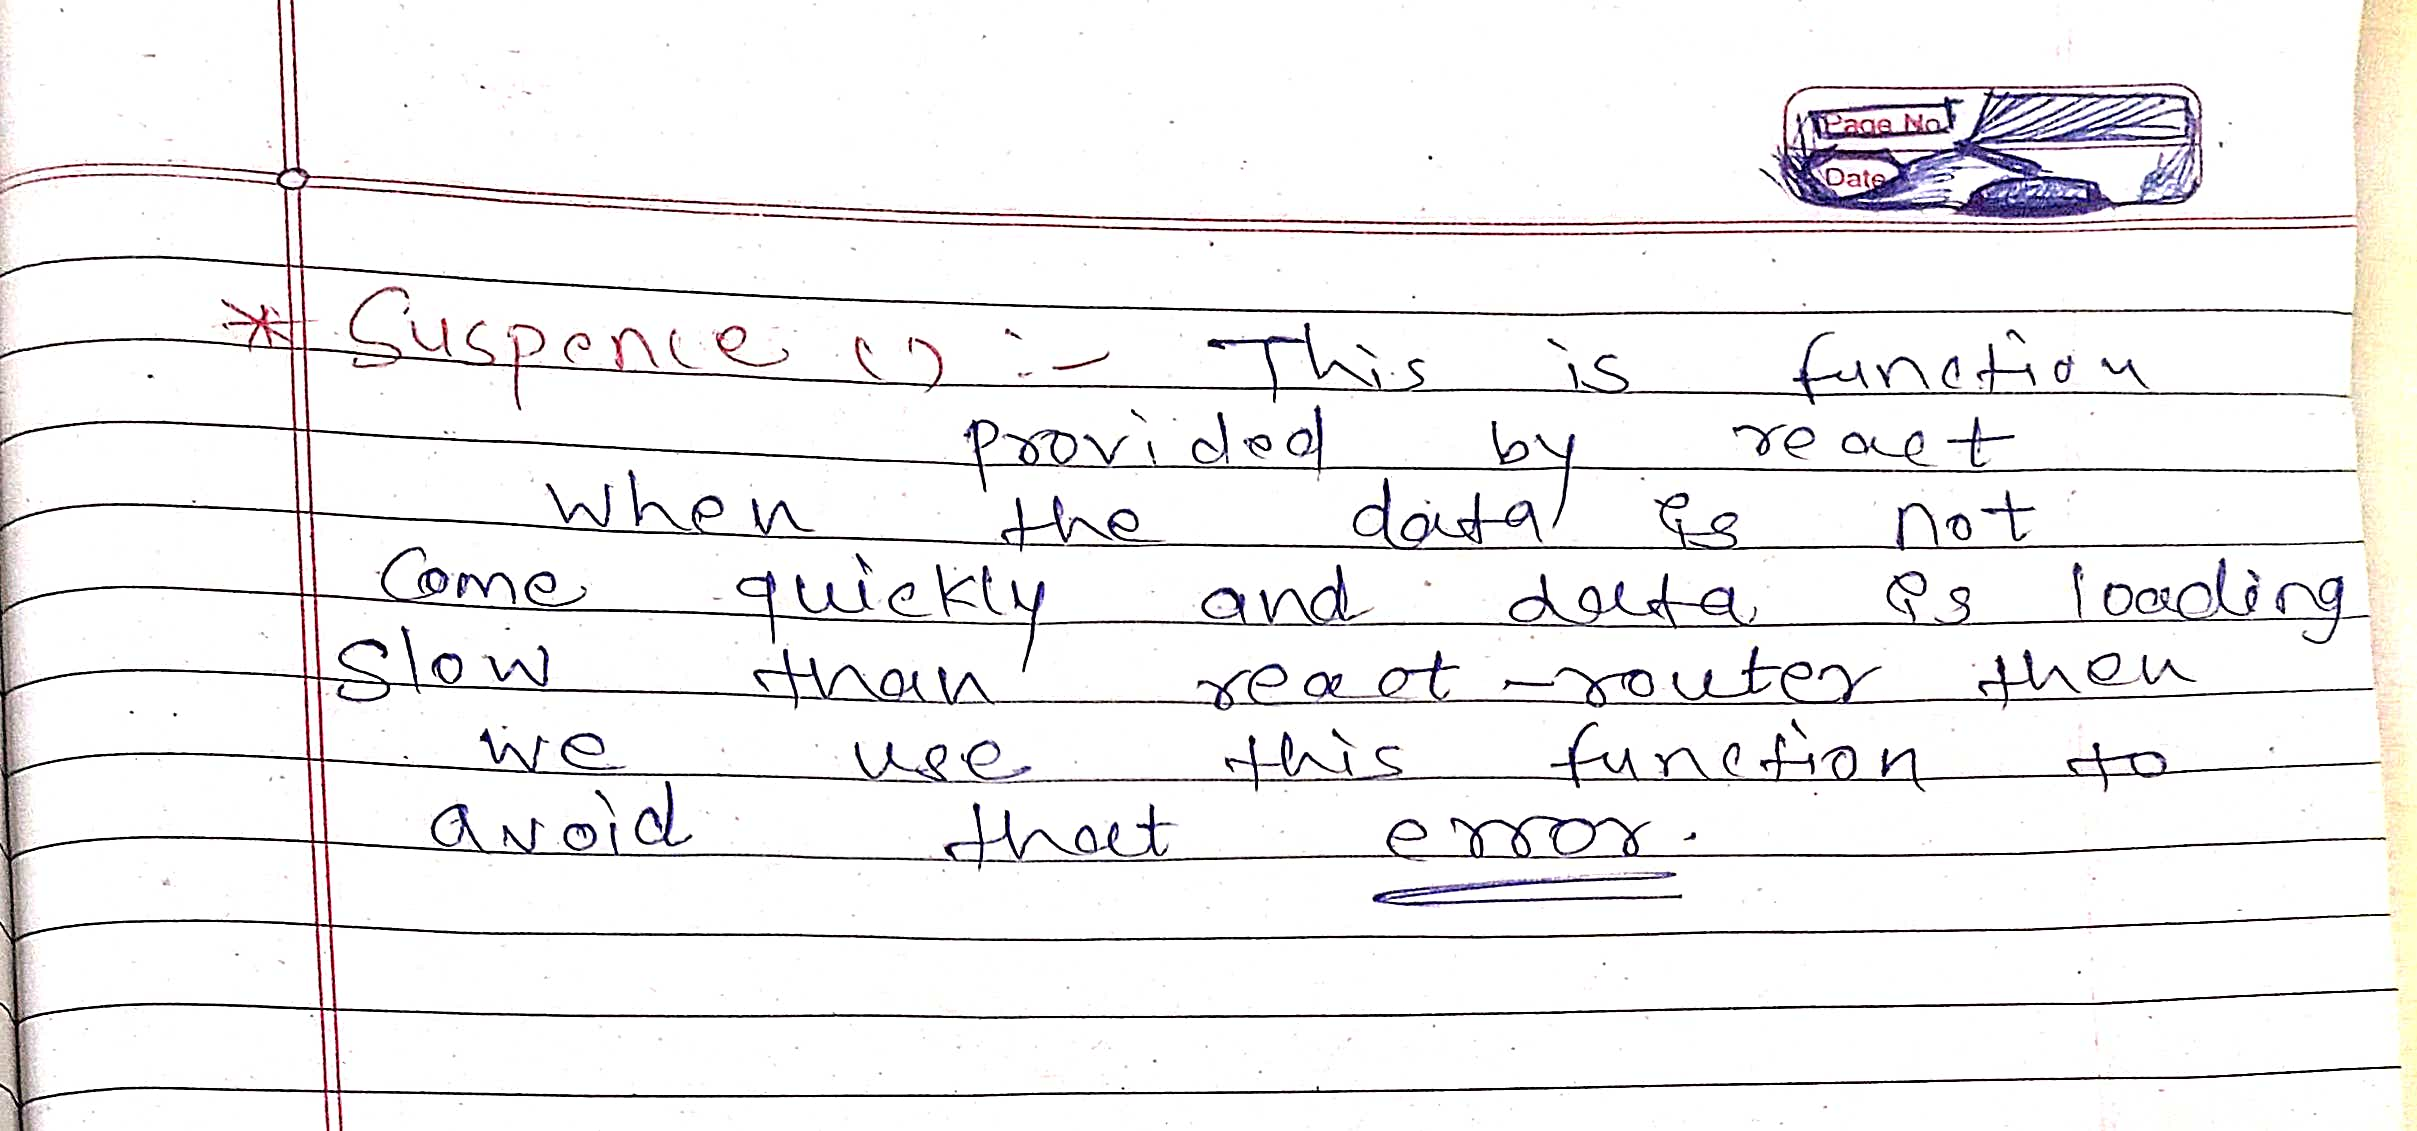 Page No
Date
* Suspence () :- This is function
provided by react
when the data is not
Come quickly and data is loading
Slow than react-router then
we use this function to
avoid that error.